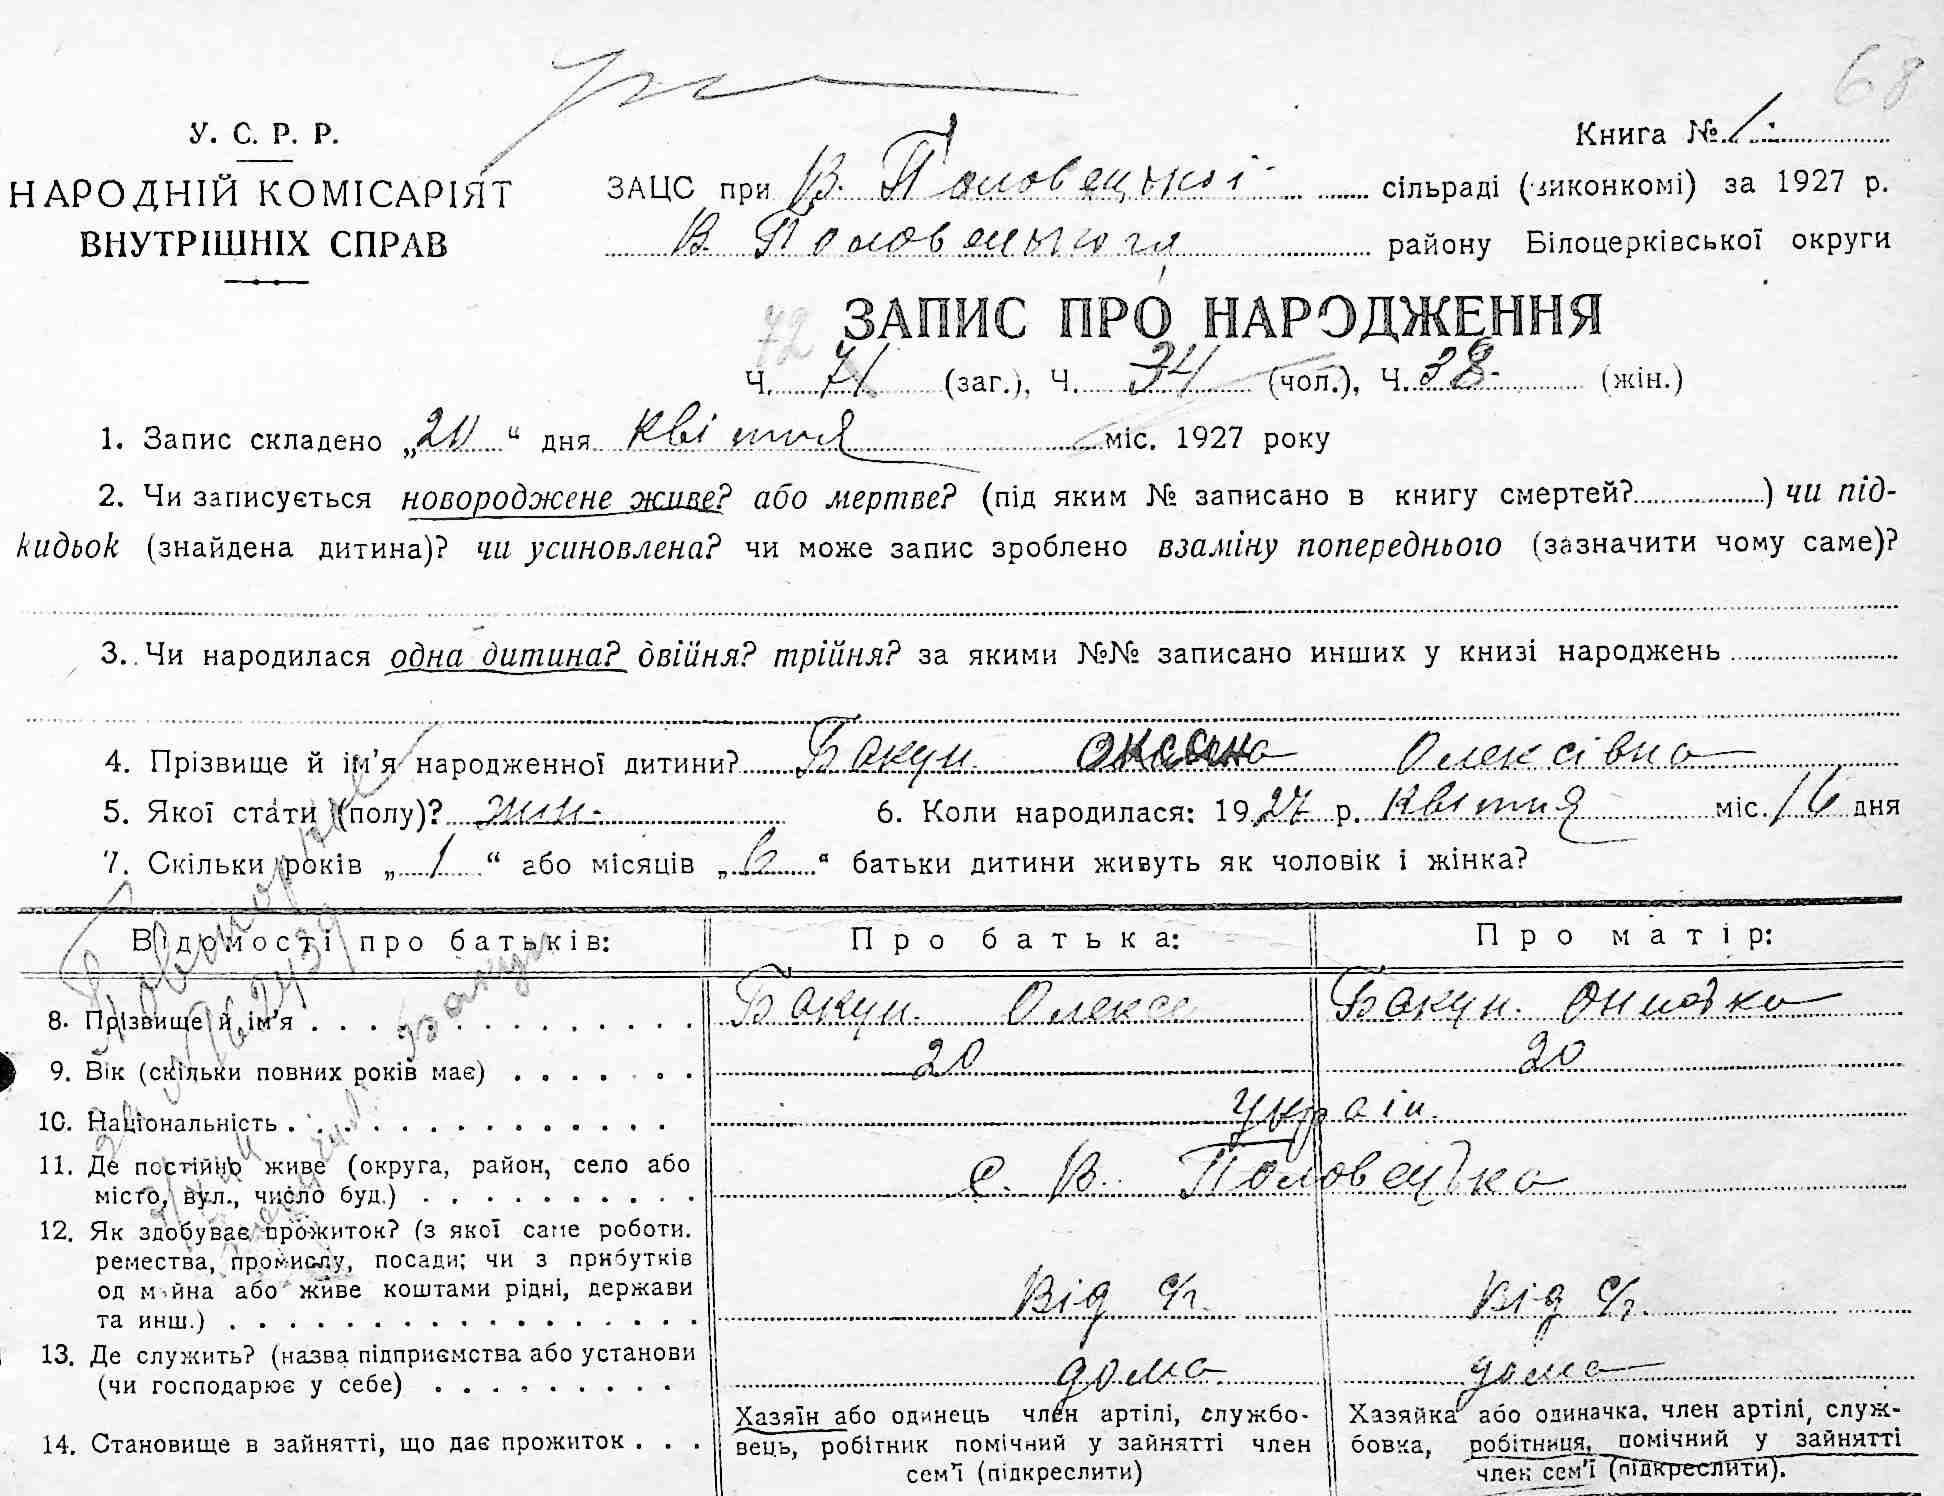 68
У. С. Р. Р.
НАРОДНІЙ КОМІСАРІЯТ
ВНУТРІШНІХ СПРАВ
Книга № 1
ЗАЦС при В. Половецькій сільраді (виконкомі) за 1927 р.
В. Половецького району Білоцерківської округи
ЗАПИС ПРО НАРОДЖЕННЯ
72
Ч. 71 (заг.), Ч. 34 (чол.), Ч. 38 (жін.)
1. Запис складено „20“ дня квітня міс. 1927 року
2. Чи записується новороджене живе? або мертве? (під яким № записано в книгу смертей?) чи під-
кидьок (знайдена дитина)? чи усиновлена? чи може запис зроблено взаміну попереднього (зазначити чому саме)?
3. Чи народилася одна дитина? двійня? трійня? за якими №№ записано инших у книзі народжень
4. Прізвище й ім'я народженної дитини? Бакун Оксана Олексівна
5. Якої стати (полу)? жин. 6. Коли народилася: 1927 р. квітня міс. 16 дня
7. Скільки років „1“ або місяців „6“ батьки дитини живуть як чоловік і жінка?
Відомості про батьків: Про батька: Про матір:
8. Прізвище й ім'я Бакун Олекса Бакун
9. Вік (скільки повних років має) 20 20
10. Національність Україн.
11. Де постійно живе (округа, район, село або
місто, вул., число буд.) с. В. Половецька
12. Як здобуває прожиток? (з якої саме роботи.
ремества, промислу, посади; чи з прибутків
од майна або живе коштами рідні, держави
та инш.) Від с/г. Від с/г.
13. Де служить? (назва підприємства або установи
(чи господарює у себе) дома дома
14. Становище в зайнятті, що дає прожиток
Хазяїн або одинець член артілі, службо-
вець, робітник помічний у зайнятті член
сем'ї (підкреслити)
Хазяйка або одиначка, член артілі, служ-
бовка, робітниця, помічний у зайнятті
член сем'ї (підкреслити).
Повторне
Бакун